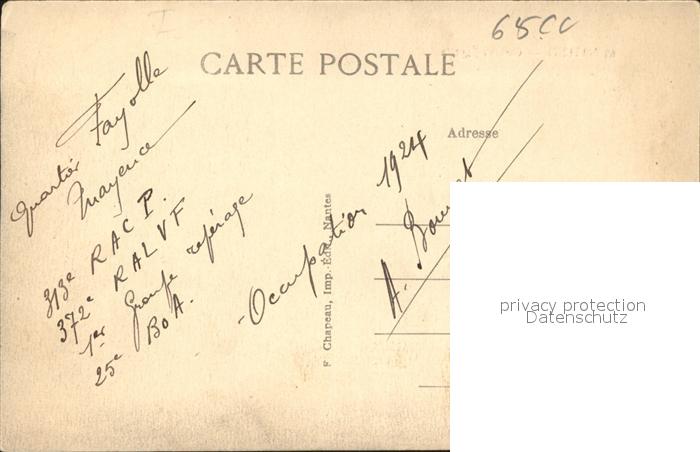 65CC
CARTE POSTALE
Adresse
Quartier Fayolle
Mayence
313e RACP.
372e RALVF
1er Groupe repérage
25e BOA.
- Occupation 1924
A.
F Chapeau, Imp.-Édit., Nantes
privacy protection
Datenschutz